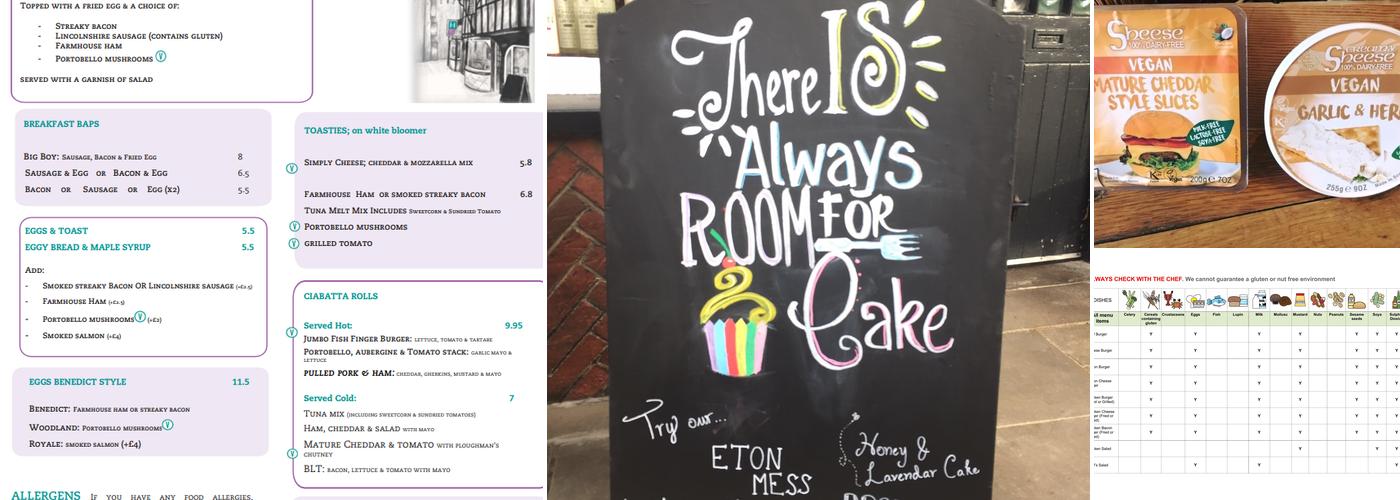 TOPPED WITH A FRIED EGG & A CHOICE OF:
- STREAKY BACON
- LINCOLNSHIRE SAUSAGE (CONTAINS GLUTEN)
- FARMHOUSE HAM
- PORTOBELLO MUSHROOMS V
SERVED WITH A GARNISH OF SALAD
BREAKFAST BAPS
BIG BOY: SAUSAGE, BACON & FRIED EGG 8
SAUSAGE & EGG OR BACON & EGG 6.5
BACON OR SAUSAGE OR EGG (X2) 5.5
EGGS & TOAST 5.5
EGGY BREAD & MAPLE SYRUP 5.5
ADD:
- SMOKED STREAKY BACON OR LINCOLNSHIRE SAUSAGE (+£2.5)
- FARMHOUSE HAM (+£2.5)
- PORTOBELLO MUSHROOMS V (+£2)
- SMOKED SALMON (+£4)
EGGS BENEDICT STYLE 11.5
BENEDICT: FARMHOUSE HAM OR STREAKY BACON
WOODLAND: PORTOBELLO MUSHROOMS V
ROYALE: SMOKED SALMON (+£4)
ALLERGENS IF YOU HAVE ANY FOOD ALLERGIES,
TOASTIES; on white bloomer
V SIMPLY CHEESE; CHEDDAR & MOZZARELLA MIX 5.8
FARMHOUSE HAM OR SMOKED STREAKY BACON 6.8
TUNA MELT MIX INCLUDES SWEETCORN & SUNDRIED TOMATO
V PORTOBELLO MUSHROOMS
V GRILLED TOMATO
CIABATTA ROLLS
Served Hot: 9.95
JUMBO FISH FINGER BURGER: LETTUCE, TOMATO & TARTARE
V PORTOBELLO, AUBERGINE & TOMATO STACK: GARLIC MAYO &
LETTUCE
PULLED PORK & HAM: CHEDDAR, GHERKINS, MUSTARD & MAYO
Served Cold: 7
TUNA MIX (INCLUDING SWEETCORN & SUNDRIED TOMATOES)
HAM, CHEDDAR & SALAD WITH MAYO
V MATURE CHEDDAR & TOMATO WITH PLOUGHMAN'S
CHUTNEY
BLT: BACON, LETTUCE & TOMATO WITH MAYO
There IS
Always
ROOM FOR
Cake
Try our...
ETON
MESS
Honey &
Lavendar Cake
Sheese
100% DAIRY-FREE
VEGAN
MATURE CHEDDAR
STYLE SLICES
MILK-FREE
LACTOSE-FREE
SOYA-FREE
Vegan
200g 7OZ
CREAMY
Sheese
100% DAIRY-FREE
VEGAN
GARLIC & HER
255g 9OZ
WAYS CHECK WITH THE CHEF. We cannot guarantee a gluten or nut free environment
DISHES
Celery Cereals containing gluten Crustaceans Eggs Fish Lupin Milk Mollusc Mustard Nuts Peanuts Sesame seeds Soya
ll menu items
Burger Y Y Y Y Y Y
Burger Y Y Y Y Y Y
Burger Y Y Y Y Y Y
Cheese Y Y Y Y Y Y
Y Y Y Y Y Y
Cheese Y Y Y Y Y Y
Bacon Y Y Y Y Y Y
Salad Y Y
's Salad Y Y Y